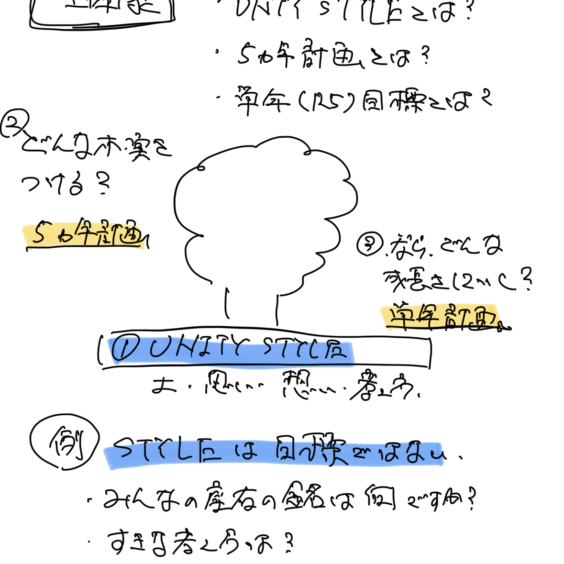 ・UNITY STYLEとは?
・5ヵ年計画とは?
・単年(R5)目標とは?
② どんな木、実を
つける?
5ヵ年計画
③ なら、どんな
成長をしていく?
単年計画
① UNITY STYLE
土・思い… 想い…考え方。
例 STYLEは目標ではない。
・みんなの座右の銘は何ですか?
・すきな考え方は?